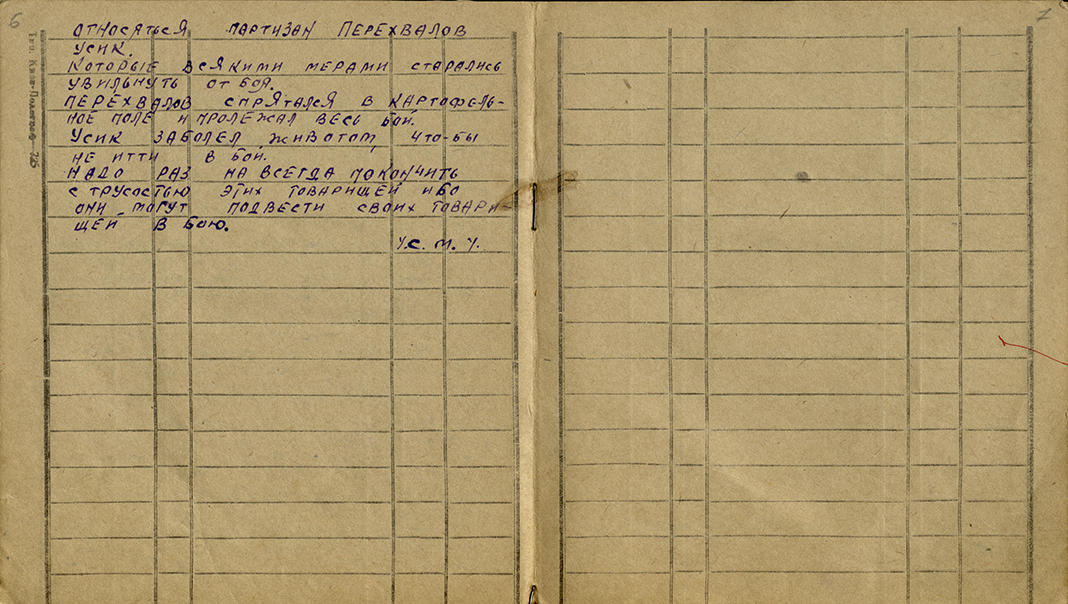 6
7
ОТНОСЯТЬСЯ ПАРТИЗАН ПЕРЕХВАЛОВ
УСИК.
КОТОРЫЕ ВСЯКИМИ МЕРАМИ СТАРАЛИСЬ
УВИЛЬНУТЬ ОТ БОЯ.
ПЕРЕХВАЛОВ СПРЯТАЛСЯ В КАРТОФЕЛЬ-
НОЕ ПОЛЕ И ПРОЛЕЖАЛ ВЕСЬ БОЙ.
УСИК ЗАБОЛЕЛ „ЖИВОТОМ" ЧТО-БЫ
НЕ ИТТИ В БОЙ.
НАДО РАЗ НА ВСЕГДА ПОКОНЧИТЬ
С ТРУСОСТЬЮ ЭТИХ ТОВАРИЩЕЙ ИБО
ОНИ МОГУТ ПОДВЕСТИ СВОИХ ТОВАРИ-
ЩЕЙ В БОЮ.
У.С.М.У.